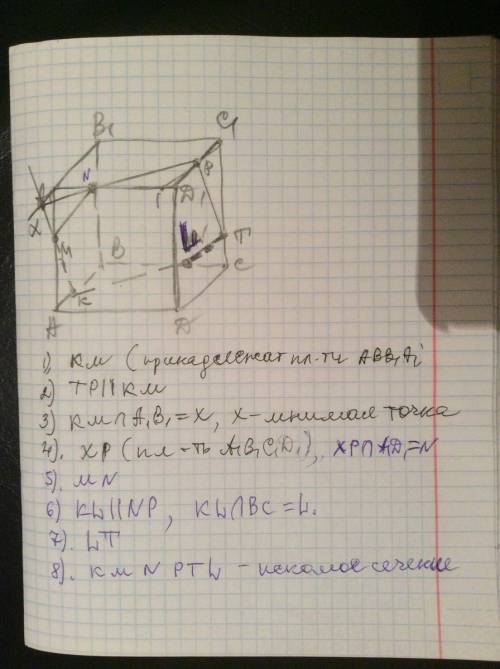 B₁
C₁
N
P
D₁
X
M
L
T
B
C
K
A
D
1) КМ (принадлежат пл-ти ABB₁A₁
2) TP||КМ
3) КМ∩A₁B₁=X, X-мнимая точка
4). XP (пл-ть A₁B₁C₁D₁), XP∩A₁D₁=N
5). MN
6) KL||NP, KL∩BC=L.
7). LT
8). KMNPTL - искомое сечение